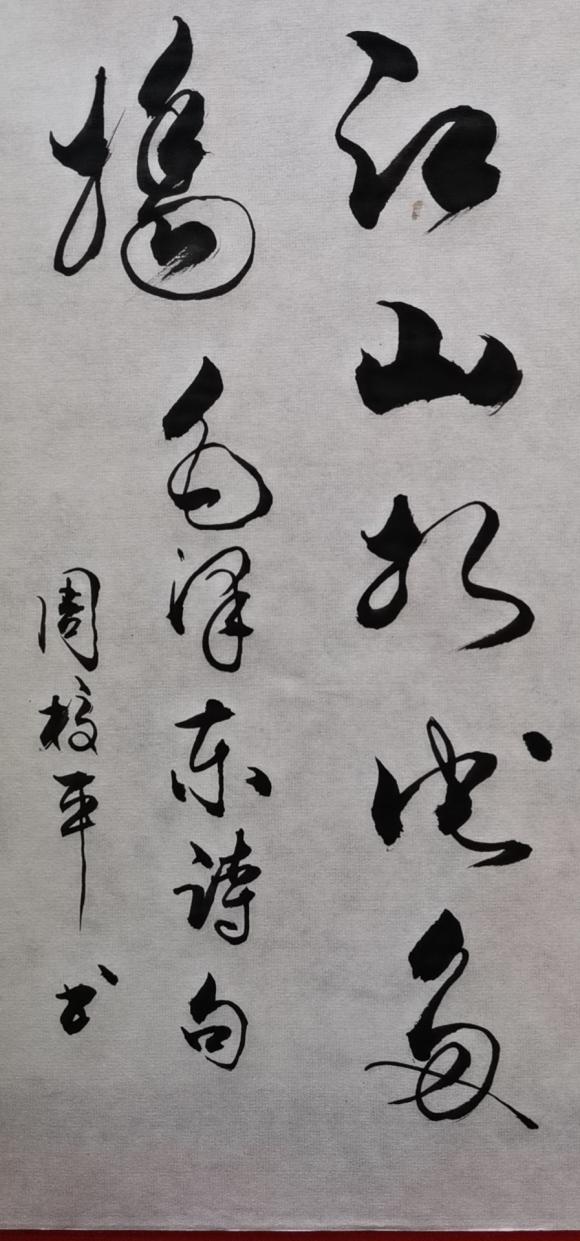 江山如此多
嬌 毛泽东诗句
周校平书